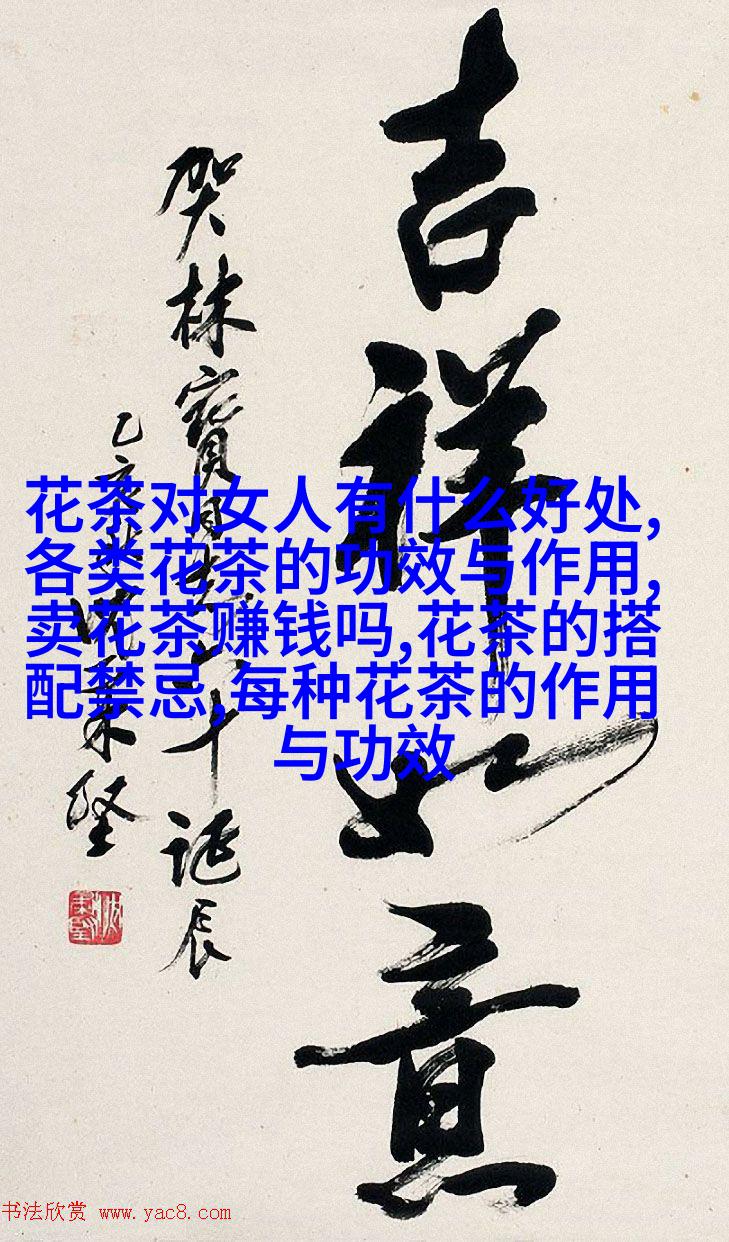 吉祥如意
贺林宝
诞辰
花茶对女人有什么好处,
各类花茶的功效与作用,
卖花茶赚钱吗,花茶的搭
配禁忌,每种花茶的作用
与功效
书法欣赏 www.yac8.com